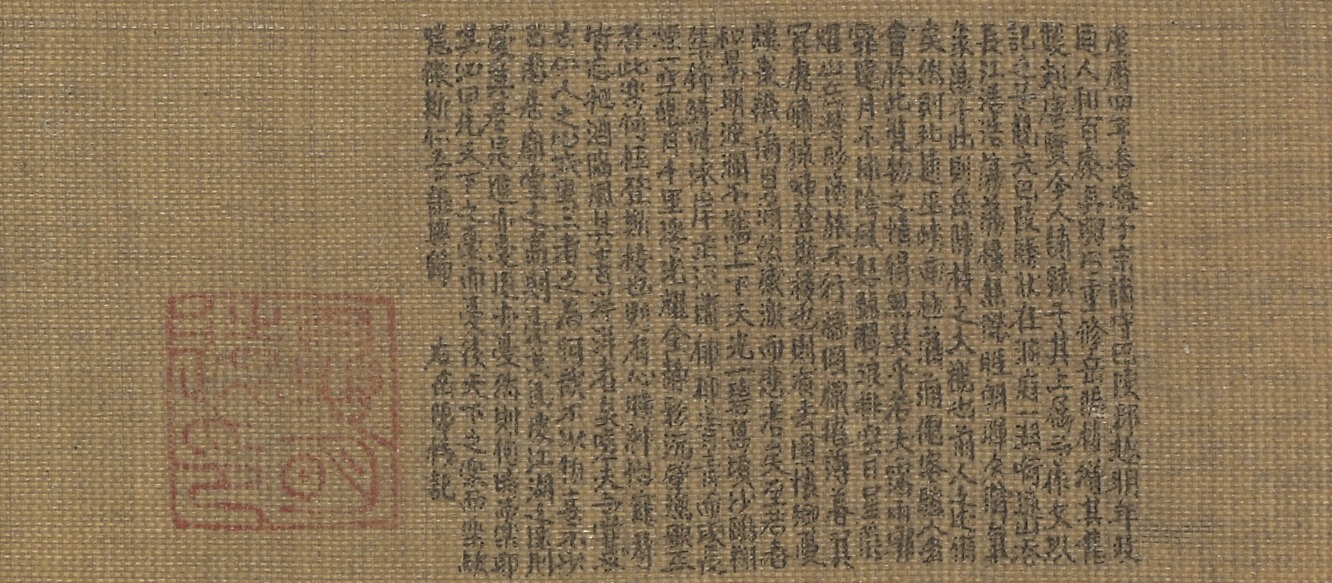 慶曆四年春滕子京謫守巴陵郡越明年政
通人和百廢具興乃重修岳陽樓增其舊
製刻唐賢今人詩賦于其上屬予作文以
記之予觀夫巴陵勝狀在洞庭一湖銜遠山吞
長江浩浩蕩蕩橫無際涯朝暉夕陰氣
象萬千此則岳陽樓之大觀也前人之述備
矣然則北通巫峽南極瀟湘遷客騷人多
會於此覽物之情得無異乎若夫霪雨霏
霏連月不開陰風怒號濁浪排空日星隱
耀山岳潛形商旅不行檣傾楫摧薄暮冥
冥虎嘯猿啼登斯樓也則有去國懷鄉憂
讒畏譏滿目蕭然感激而悲者矣至若春
和景明波瀾不驚上下天光一碧萬頃沙鷗翔
集錦鱗游泳岸芷汀蘭郁郁青青而或長
煙一空皓月千里浮光耀金靜影沉璧漁歌互
答此樂何極登斯樓也則有心曠神怡寵辱
皆忘把酒臨風其喜洋洋者矣嗟夫予嘗求
古仁人之心或異二者之為何哉不以物喜不以
己悲居廟堂之高則憂其民處江湖之遠則
憂其君是進亦憂退亦憂然則何時而樂耶
其必曰先天下之憂而憂後天下之樂而樂歟
噫微斯仁吾誰與歸 右岳陽樓記